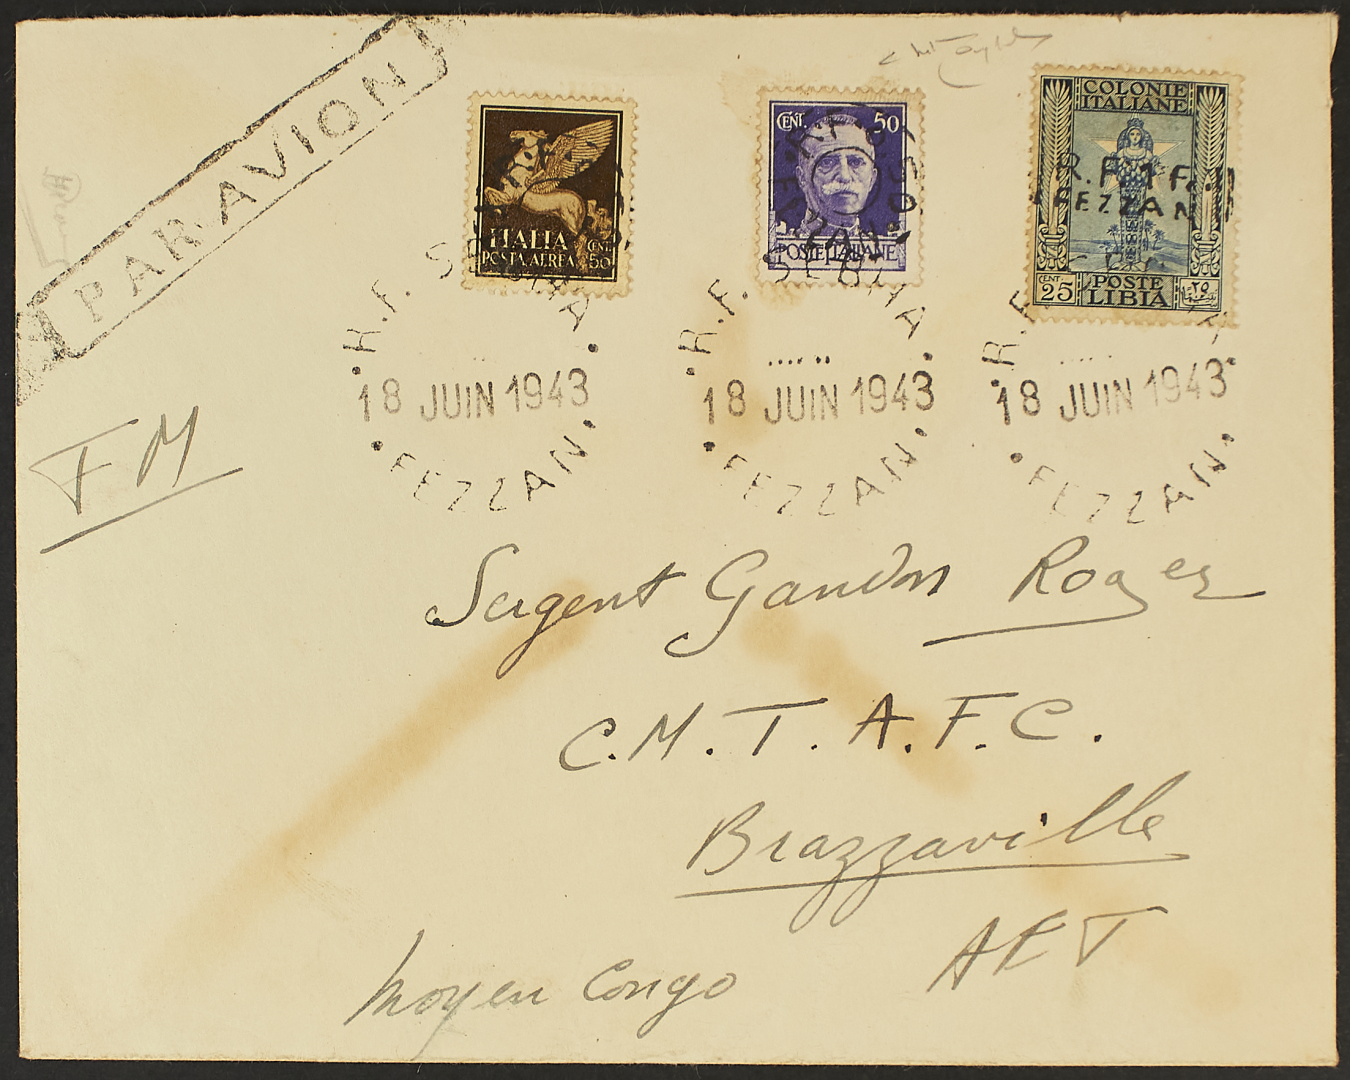 PAR AVION
ITALIA
POSTA AEREA
CENT.
50
CENT. 50
POSTE ITALIANE
COLONIE
ITALIANE
R.F. 1 Fc.
FEZZAN
CENT
25
POSTE
LIBIA
٢٥
R.F. SEBHA
18 JUIN 1943
FEZZAN
R.F. SEBHA
18 JUIN 1943
FEZZAN
R.F.
18 JUIN 1943
FEZZAN
FM
Sergent Gandon Roger
C.M.T.A.F.C.
Brazzaville
AEF
Moyen Congo